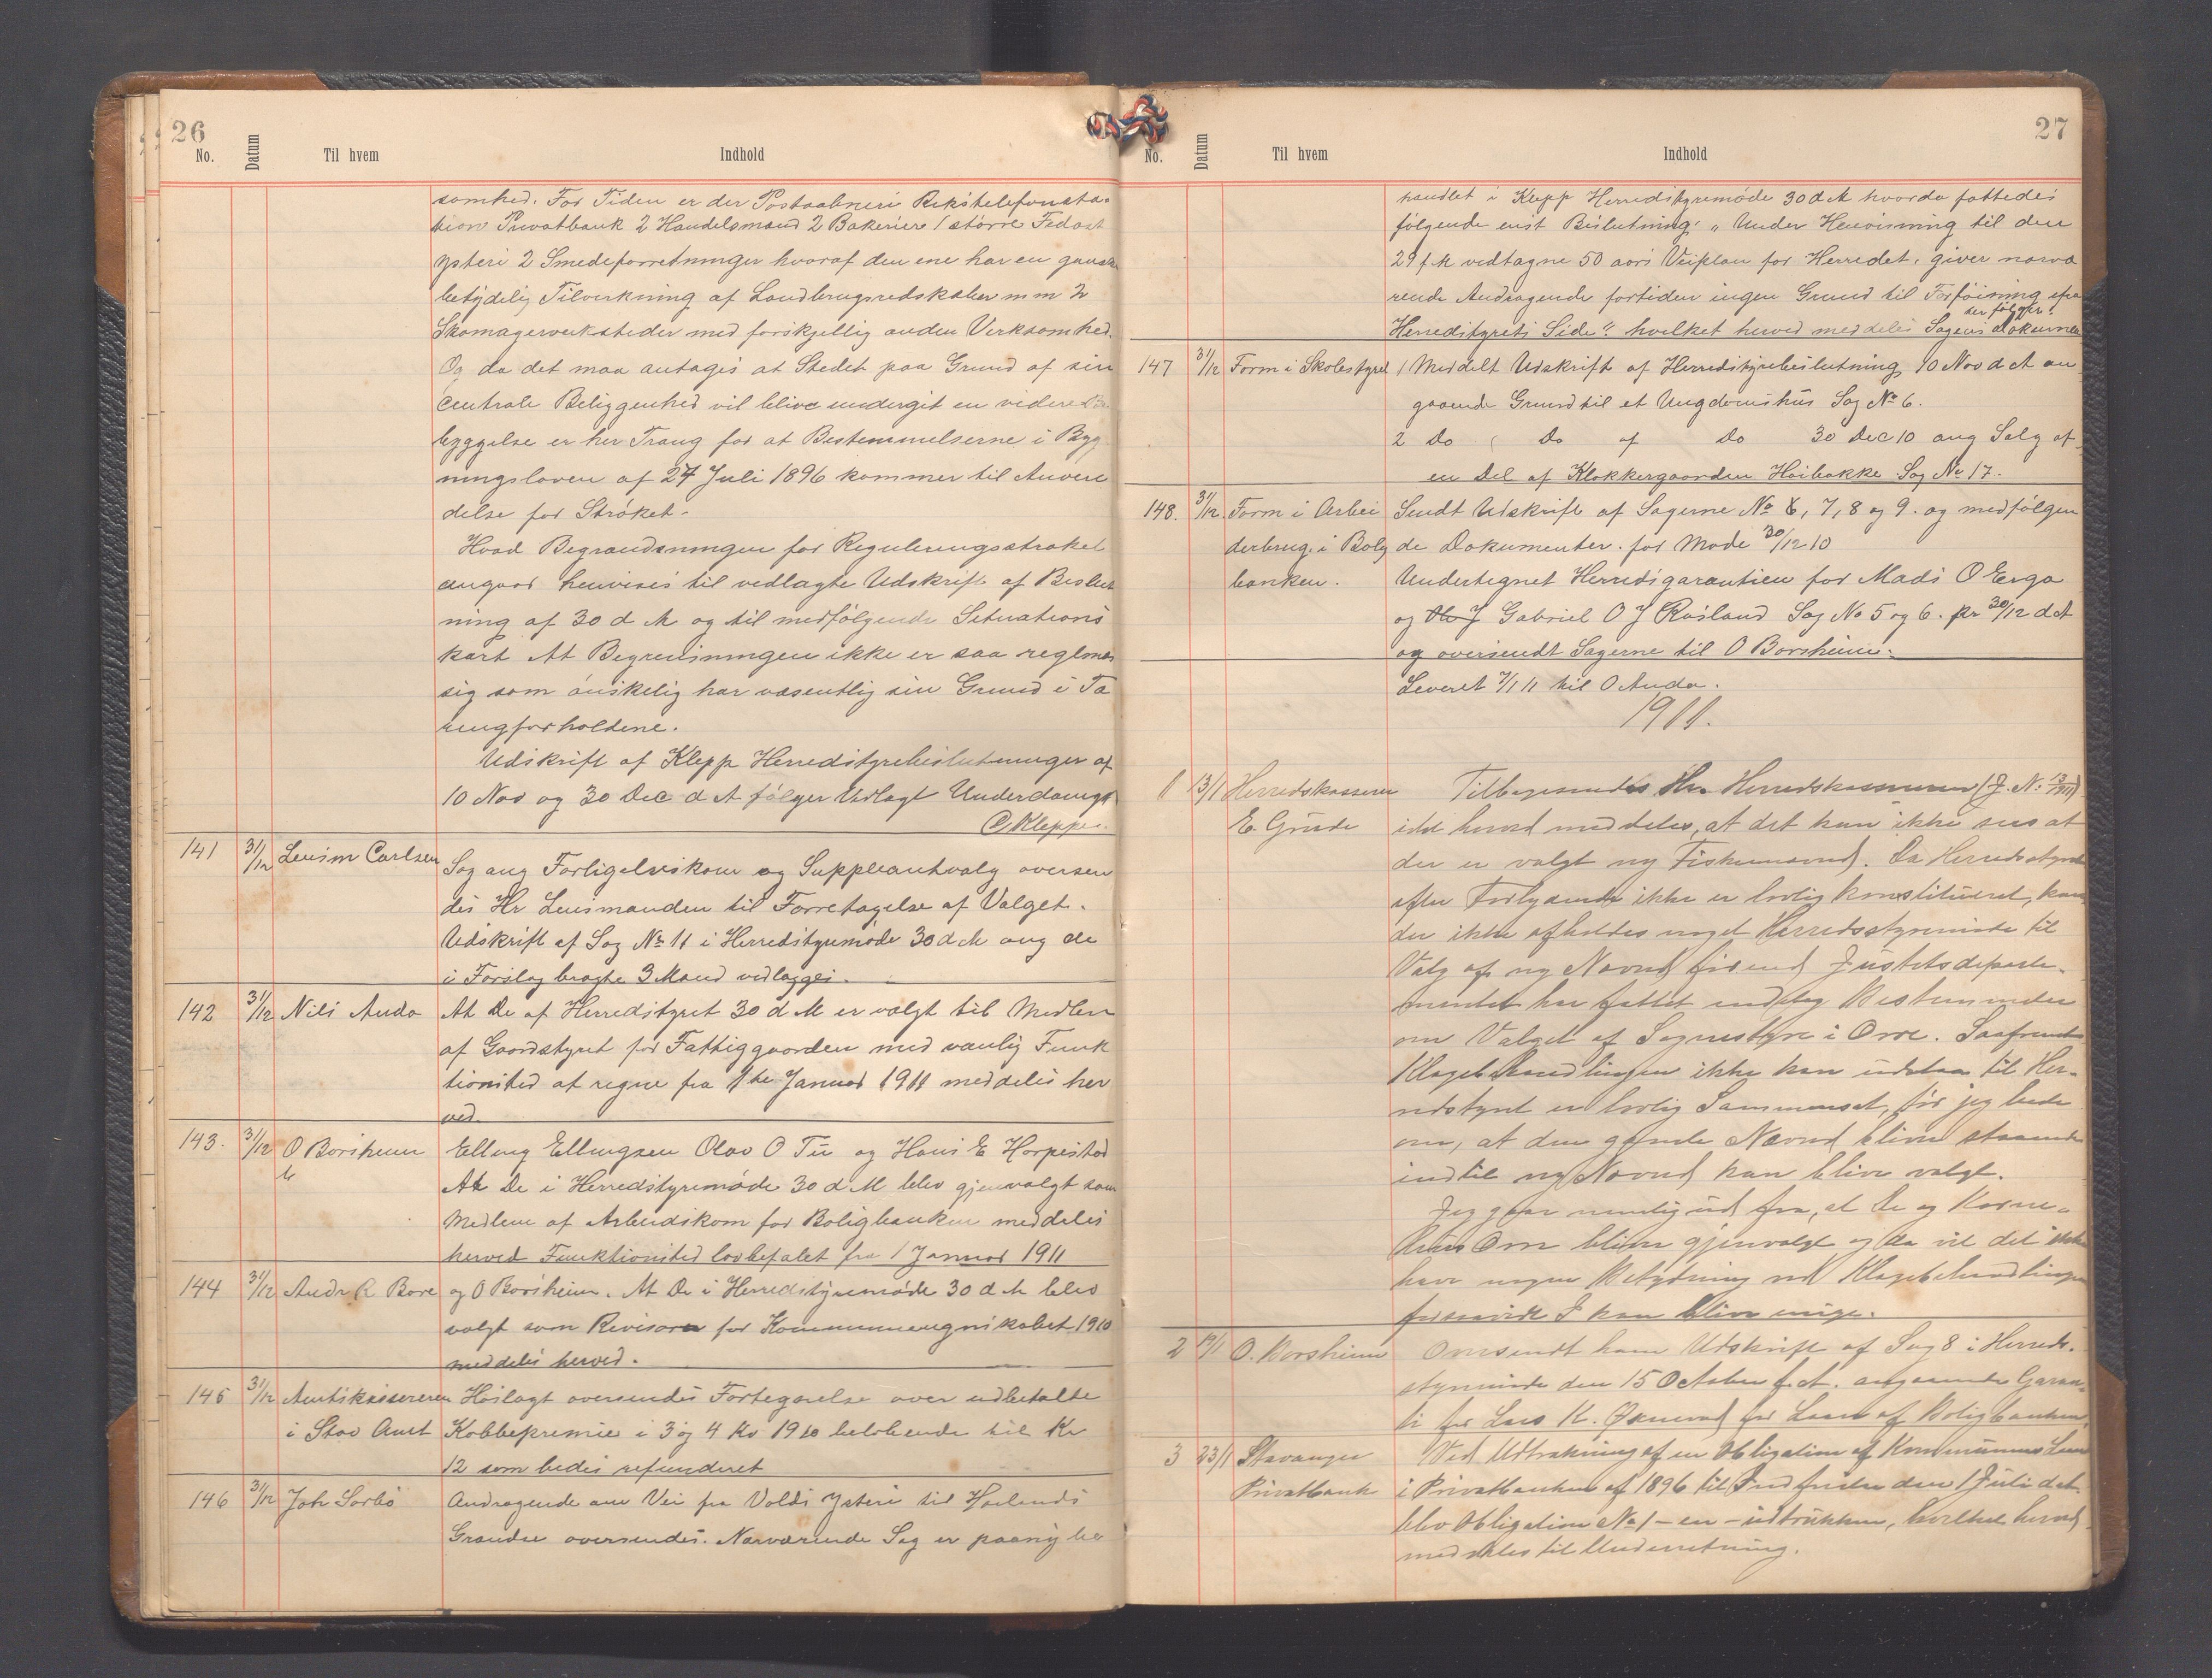 26
No. Datum Til hvem Indhold
somhed. For Tiden er der Postaabneri Rikstelefonsta-
tion Privatbank 2 Handelsmænd 2 Bakerier 1 större Fedost
ysteri 2 Smedeforretninger hvoraf den ene har en ganske
betydelig Tilvirkning af Landbrugsredskaber m m 2
Skomagerverksteder med forskjellig anden Verksomhed.
Og da det maa antages at Stedet paa Grund af sin
centrale Beliggenhed vil blive undergit en videre
byggelse er her Trang for at Bestemmelserne i Byg
ningsloven af 27 Juli 1896 kommer til Anven
delse for Ströket.
Hvad Begrændsningen for Reguleringsströket
angaar henvises til vedlagte Udskrift af Beslut
ning af 30 d M og til medfölgende Situations
kart At Begrensningen ikke er saa reglmæs
sig som önskelig har væsentlig sin Grund i Ta
rengforholdene.
Udskrift af Klepp Herredstyrebeslutninger af
10 Nov og 30 Dec d A fölger Udlagt Underdanigst
O Kleppe.
141 31/12 Lensm Carlsen Sag ang Forligelseskom og Suppleantvalg oversen
des Hr Lensmanden til Foretagelse af Valget.
Udskrift af Sag No 11 i Herredstyremöde 30 d M ang de
i Forslag bragte 3 Mænd vedlægges.
142 31/12 Nils Anda At De af Herredstyret 30 d M er valgt til Medlem
af Gaardstyret for Fattiggaarden med vanlig Funk
tionstid at regne fra 1ste Januar 1911 meddeles her
ved.
143. 31/12 O Borsheim Elling Ellingsen Olav O Tu og Hans E Horpestad
At De i Herredstyremöde 30 d M blev gjenvalgt som
Medlem af Arbeidskom for Boligbanken meddeles
herved Funktionstid lovbefalet fra 1 Januar 1911
144 31/12 Andr R Bore og O Borsheim. At De i Herredstyremöde 30 d M blev
valgt som Revisorer for Kommuneregnskabet 1910
meddeles herved.
145 31/12 Amtskassereren Hoslagt oversendes Fortegnelse over udbetalte
i Stav Amt Kobbepremie i 3 og 4 Kv 1910 belöbende til Kr
12 som bedes refunderet
146 31/12 Joh Sörbö Andragende om Vei fra Volds Ysteri til Havlands
Grændse oversendes. Nærværende Sag er paany be
27
No. Datum Til hvem Indhold
handlet i Klepp Herredstyremöde 30 d M hvorda fattedes
fölgende enst Beslutning: "Under Henvisning til den
29 f M vedtagne 50 aars Veiplan for Herredet, giver nærvæ
rende Andragende fortiden ingen Grund til Forföining fra
der fölger.
Herredstyrets Side". hvilket herved meddeles Sagens Dokumen
147 31/12 Form i Skolestyret 1 Meddelt Udskrift af Herredstyrebeslutning 10 Nov d A an
gaaende Grund til et Ungdomshus Sag No 6.
2 Do Do af Do 30 Dec 10 ang Salg af
en Del af Klokkergaarden Höibakke Sag No 17.
148. 31/12 Form i Arbei Sendt Udskrift af Sagerne No 6, 7, 8 og 9. og medfölgen
derbrug. i Bolig de Dokumenter. for Möde 30/12 10
banken. Undertegnet Herredsgarantien for Mads O Erga
og Gabriel O J Rosland Sag No 5 og 6. pr 30/12 d A
og oversendt Sagerne til O Borsheim.
Leveret 7/1 11 til O Anda.
1911.
1 13/1 Herredskasserer Tilbagesendes Hr. Herredskassereren (J. N. 13/1911)
E. Grude idet herved meddeles, at det kan ikke sees at
der er valgt ny Fiskenævnd. Da Herredsstyret
efter Forlydende ikke er lovlig konstitueret, kan
der ikke afholdes noget Herredsstyremöde til
Valg af ny Nævnd förend Justitsdeparte-
mentet har fattet endelig Bestemmelse
om Valget af Sognestyre i Orre. Saafremt
Klagebehandlingen ikke kan udstaa til Her-
redstyret er lovlig sammensat, för jeg bede
om, at den gamle Nævnd bliver staaende
indtil ny Nævnd kan blive valgt.
Jeg gaar nemlig ud fra, at De og Korne-
lius Orre bliver gjenvalgt og da vil det ikke
have nogen Betydning ved Klagebehandlingen
forsaavidt I kan blive enige.
2 19/1 O. Borsheim Oversendt ham Udskrift af Sag 8 i Herreds-
styremöde den 15 Oktober f. A. angaaende Garan-
ti for Lars K. Öxnevad for Laan af Boligbanken.
3 23/1 Stavanger Ved Udtrækning af en Obligation af Kommunens Laan
Privatbank i Privatbanken af 1896 til Indfrielse den 1 Juli d.A.
blev Obligation No 1 – en – udtrukken, hvilket herved
meddeles til Underretning.